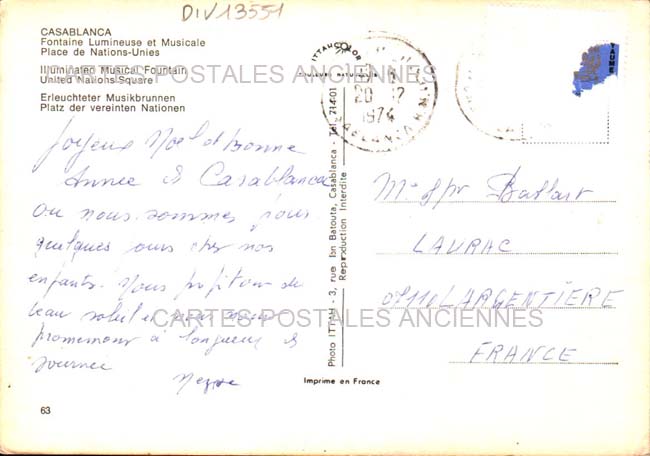 DIV13551
CASABLANCA
Fontaine Lumineuse et Musicale
Place de Nations-Unies
Illuminated Musical Fountain
United Nations Square
Erleuchteter Musikbrunnen
Platz der vereinten Nationen
CARTES POSTALES ANCIENNES
Joyeux Noël et Bonne
Année de Casablanca
où nous sommes pour
quelques jours chez nos
enfants. Nous profitons de
beau soleil et
promenons à longueur de
journée
63
Photo ITTAH - 3, rue Ibn Batouta, Casablanca - Tél. 714-01
Reproduction Interdite
ITTAHCOLOR
Imprime en France
20 12
1974
YAUME
LAURAC
07110 LARGENTIERE
FRANCE
CARTES POSTALES ANCIENNES